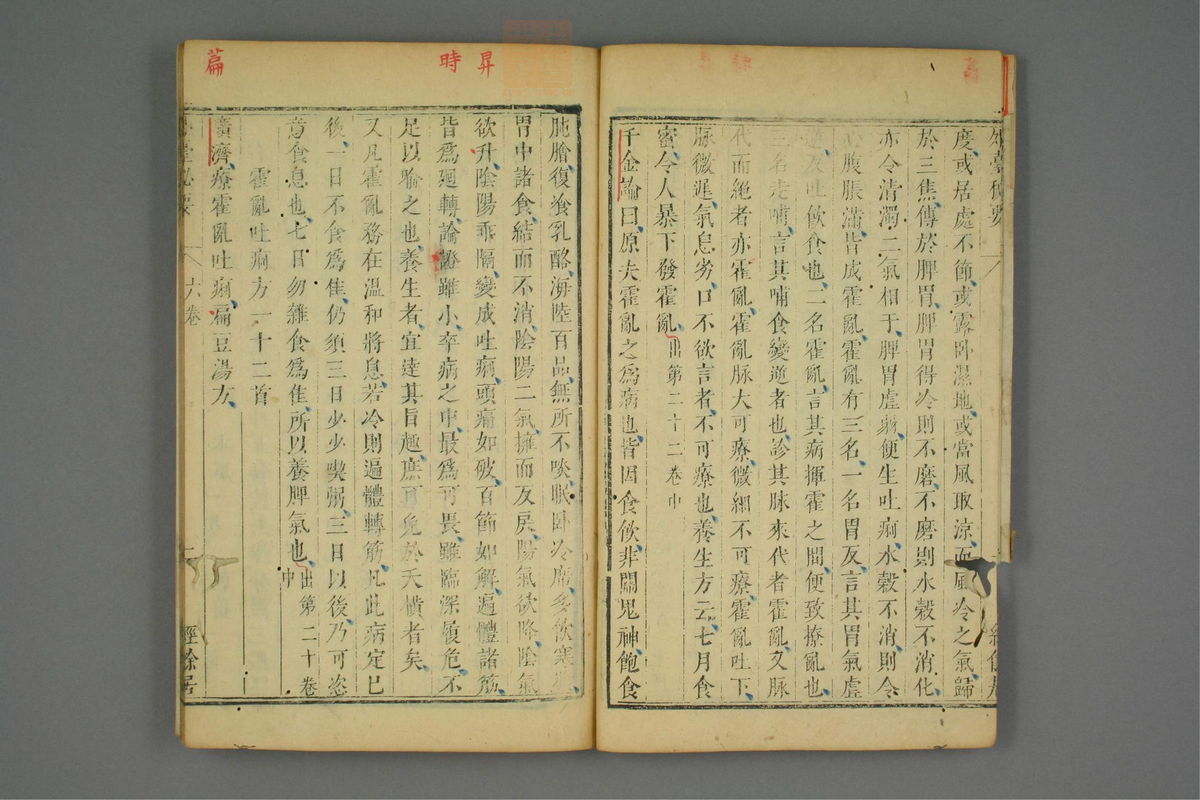 外臺秘要
度或居處不節或露卧濕地或當風取涼而風冷之氣歸
於三焦傳於脾胃脾胃得冷則不磨不磨則水穀不消化
亦令清濁二氣相干脾胃虛弱便生吐痢水穀不消則令
心腹脹滿皆成霍亂霍亂有三名一名胃反言其胃氣虛
逆反吐飲食也二名霍亂言其病揮霍之間便致撩亂也
三名走哺言其哺食變逆者也診其脉來代者霍亂又脉
代而絕者亦霍亂霍亂脉大可療微細不可療霍亂吐下
脉微遲氣息劣口不欲言者不可療也養生方云七月食
蜜令人暴下發霍亂出第二十二卷中
千金論曰原夫霍亂之為病也皆因食飲非關鬼神飽食
昇
時
篇
肫膾復飡乳酪海陸百品無所不啖眠卧冷席多飲寒漿
胃中諸食結而不消陰陽二氣擁而反戾陽氣欲降陰氣
欲升陰陽乖隔變成吐痢頭痛如破百節如解遍體諸筋
皆為廻轉論證雖小卒病之中最為可畏雖臨深履危不
足以喻之也養生者宜達其旨趣庶可免於夭橫者矣
又凡霍亂務在溫和將息若冷則遍體轉筋凡此病定已
後一日不食為佳仍須三日少少喫粥三日以後乃可恣
意食息也七日勿雜食為佳所以養脾氣也出第二十卷中
霍亂吐痢方一十二首
廣濟療霍亂吐痢扁豆湯方
六卷
經餘居